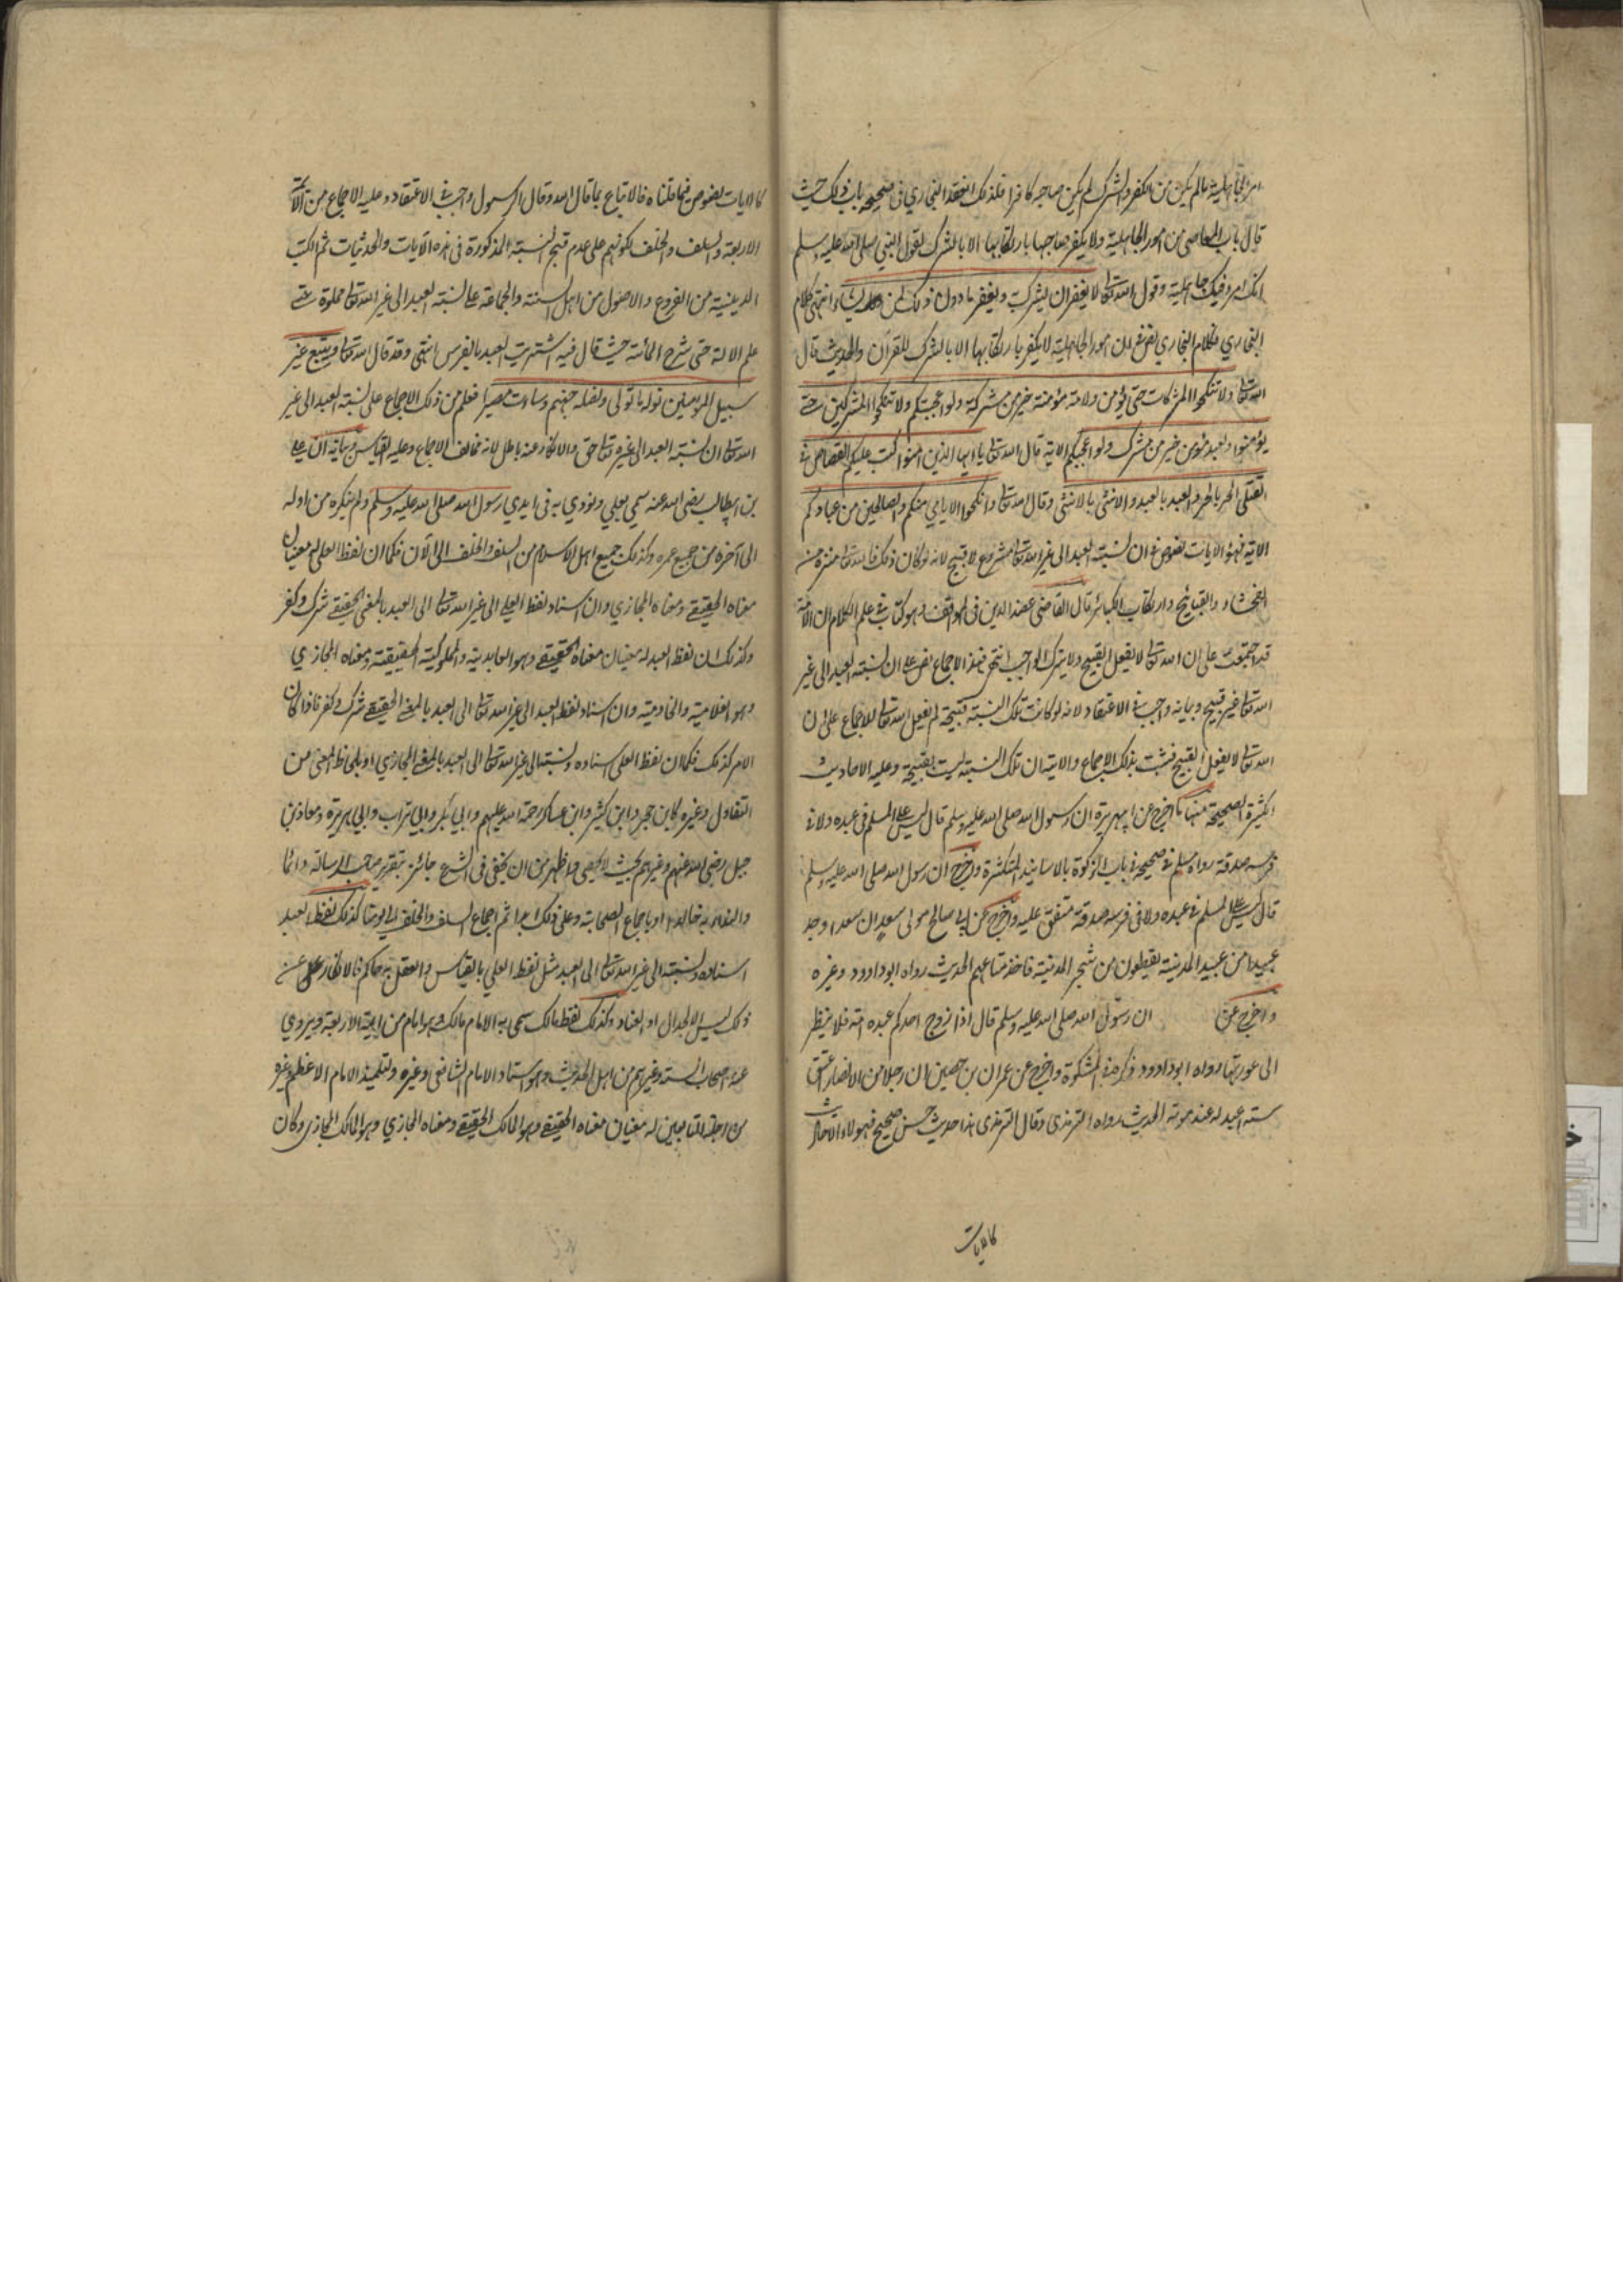 امر الجاهلية ما لم يكن من الكفر والشرك لم يكن صاحبه كافرا فلذلك انعقد البخاري في صحيحه باب ذلك حيث
قال باب المعاصي من امور الجاهلية ولا يكفر صاحبها بارتكابها الا بالشرك لقول النبي صلى الله عليه وسلم
انك امرو فيك جاهلية وقول الله تعالى لا يغفر ان يشرك به ويغفر ما دون ذلك لمن يشاء انتهى كلام
البخاري فكلام البخاري نص في ان امور الجاهلية لا يكفر بارتكابها الا بالشرك للقران والحديث قال
الله تعالى ولا تنكحوا المشركات حتى يؤمن ولامة مؤمنة خير من مشركة ولو اعجبتكم ولا تنكحوا المشركين حتى
يؤمنوا ولعبد مؤمن خير من مشرك ولو اعجبكم الاية قال الله تعالى يا ايها الذين امنوا كتب عليكم القصاص في
القتلى الحر بالحر والعبد بالعبد والانثى بالانثى وقال الله تعالى وانكحوا الايامى منكم والصالحين من عبادكم
الاية فهؤلاء الايات نصوص في ان نسبة العبد الى غير الله تعالى مشروع لا قبيح لانه لو كان ذلك فالله تعالى منزه من
الفحشاء والقبايح وارتكاب الكبائر قال القاضي عضد الدين في المواقف وهو كتاب في علم الكلام ان الامة
قد اجتمعت على ان الله تعالى لا يفعل القبيح ولا يترك الواجب انتهى فهذا الاجماع نص على ان نسبة العبد الى غير
الله تعالى غير قبيح وبيانه واجب في الاعتقاد لانه لو كانت تلك النسبة قبيحة لم يفعل الله تعالى للاجماع على ان
الله تعالى لا يفعل القبيح فثبت بذلك الاجماع والاية ان تلك النسبة ليست بقبيحة وعليه الاحاديث
الكثيرة الصحيحة منها ما اخرج عن ابي هريرة ان رسول الله صلى الله عليه وسلم قال ليس على المسلم في عبده ولا في
فرسه صدقة رواه مسلم في صحيحه في باب الزكوة بالاسانيد المتكثرة واخرج ان رسول الله صلى الله عليه وسلم
قال ليس على المسلم في عبده ولا في فرسه صدقة متفق عليه واخرج عن ابي صالح مولى سعد ان سعدا وجد
عبيدا من عبيد المدينة يقطعون من شجر المدينة فاخذ متاعهم الحديث رواه ابوداوود وغيره
واخرج عن ان رسول الله صلى الله عليه وسلم قال اذا زوج احدكم عبده امته فلا ينظر
الى عورتها رواه ابوداوود ذكره في المشكوة واخرج عن عمران بن حصين ان رجلا من الانصار اعتق
ستة اعبد له عند موته الحديث رواه الترمذي وقال الترمذي هذا حديث حسن صحيح فهولاء الاحاديث
كالايات
كالايات نصوص فيما قلناه فالاتباع بما قال الله وقال الرسول واجب في الاعتقاد وعليه الاجماع من الائمة
الاربعة والسلف والخلف لكونهم على عدم قبح النسبة المذكورة في هذه الايات والحديثات ثم الكتب
الدينية من الفروع والاصول من اهل السنة والجماعة على نسبة العبد الى غير الله تعالى مملوة حتى
علم الالة حتى شرح المأئة حيث قال فيه اشتريت العبد بالفرس انتهى وقد قال الله تعالى ويتبع غير
سبيل المؤمنين نوله ما تولى ونصله جهنم وساءت مصيرا فعلم من ذلك الاجماع على نسبة العبد الى غير
الله تعالى ان نسبة العبد الى غيره تعالى حق والانكار عنه باطل لانه مخالف الاجماع وعليه القياس وبيانه ان علي
بن ابيطالب رضي الله عنه سمي بعلي ونودي به في ايدي رسول الله صلى الله عليه وسلم ولم ينكره من اوله
الى آخره من جميع عمره وكذلك جميع اهل الاسلام من السلف والخلف الى الآن فكما ان لفظ العلي له معنيان
معناه الحقيقي ومعناه المجازي وان اسناد لفظ العلي الى غير الله تعالى الى العبد بالمعنى الحقيقي شرك وكفر
وكذلك ان لفظ العبد له معنيان معناه الحقيقي وهو العابدية والمملوكية الحقيقية ومعناه المجازي
وهو الغلامية والخادمية وان اسناد لفظ العبد الى غير الله تعالى الى العبد بالمعنى الحقيقي شرك وكفر فاذا كان
الامر كذلك فكما ان لفظ العلي اسناده ونسبته الى غير الله تعالى الى العبد بالمعنى المجازي او بلحاظ المعنى من
التفاول وغيره كابن حجر وابن كثير وابن عساكر رحمة الله عليهم وابي بكر وابي تراب وابي هريرة ومعاذ بن
جبل رضي الله عنهم وغيرهم بحيث لا يحصى واظهر من ان يخفى في الشرع جائز بتقرير صاحب الرسالة دائما
والنداء به او باجماع الصحابة وعلى ذلك ثم اجماع السلف والخلف الى يومنا كذلك لفظ العبد
اسناده ونسبته الى غير الله تعالى الى العبد مثل لفظ العلي بالقياس والعقل به حاكم فالانكار عن
ذلك ليس الا الجدال او العناد وكذلك لفظ مالك سمي به الامام مالك وهو امام من ائمة الاربعة ويروي
عنه اصحاب الستة وغيرهم من اهل الحديث وهو استاد الامام الشافعي وغيره وتلميذ الامام الاعظم وغيره
من اجلة التابعين له معنيان معناه الحقيقي وهو المالك الحقيقي ومعناه المجازي وهو المالك المجازي وكان